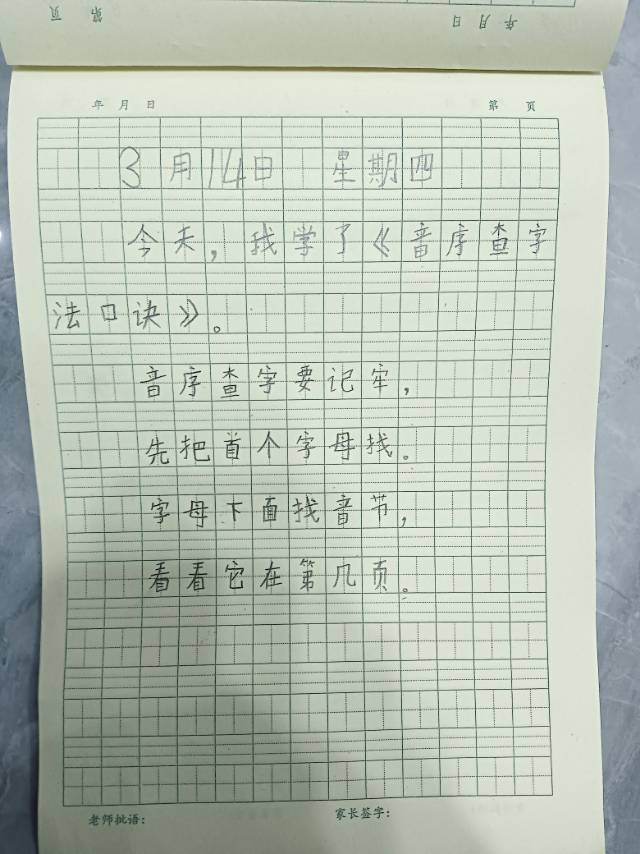 第 页
年 月 日
年 月 日 第 页
3月14日 星期四
今天,我学了《音序查字
法口诀》。
音序查字要记牢,
先把首个字母找。
字母下面找音节,
看看它在第几页。
老师批语: 家长签字: